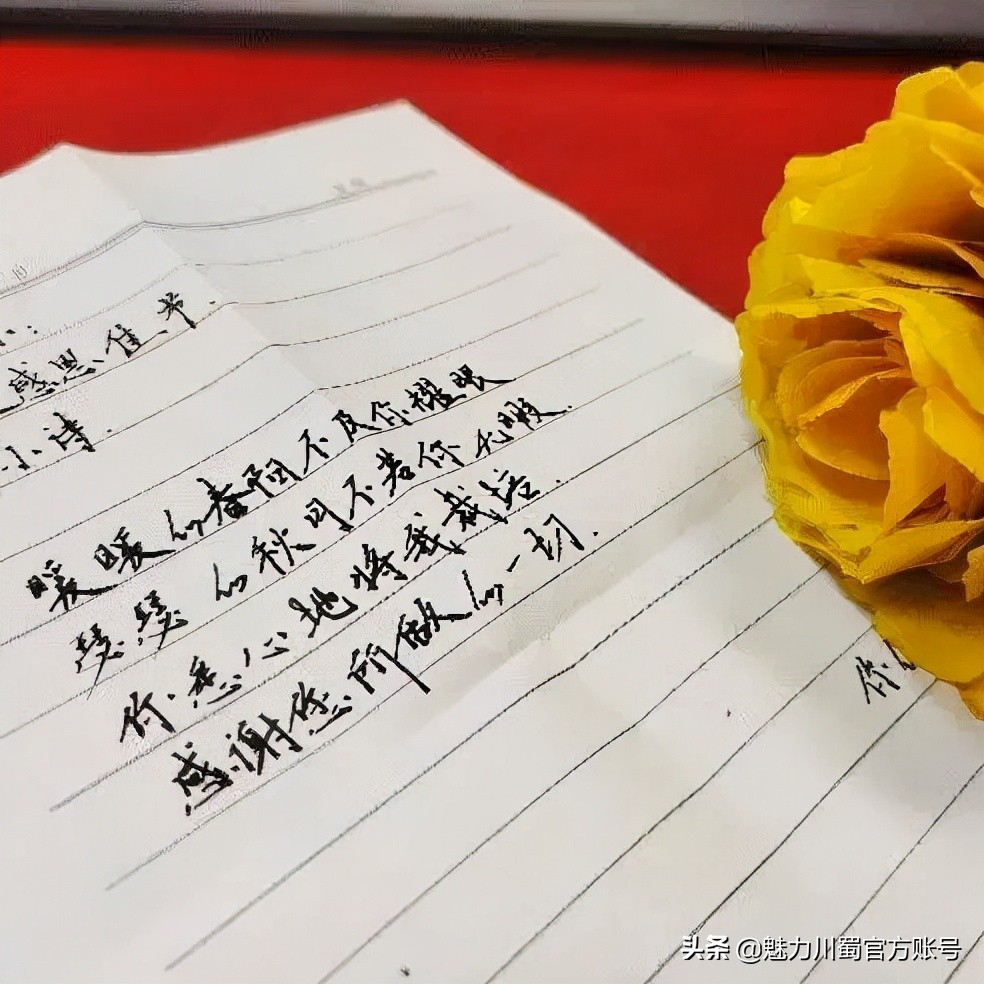 感恩佳节.
小诗.
暖暖的春阳不及你耀眼
瑟瑟的秋月不若你无暇.
你悉心地将我栽培.
感谢您所做的一切.
你
头条 @魅力川蜀官方账号